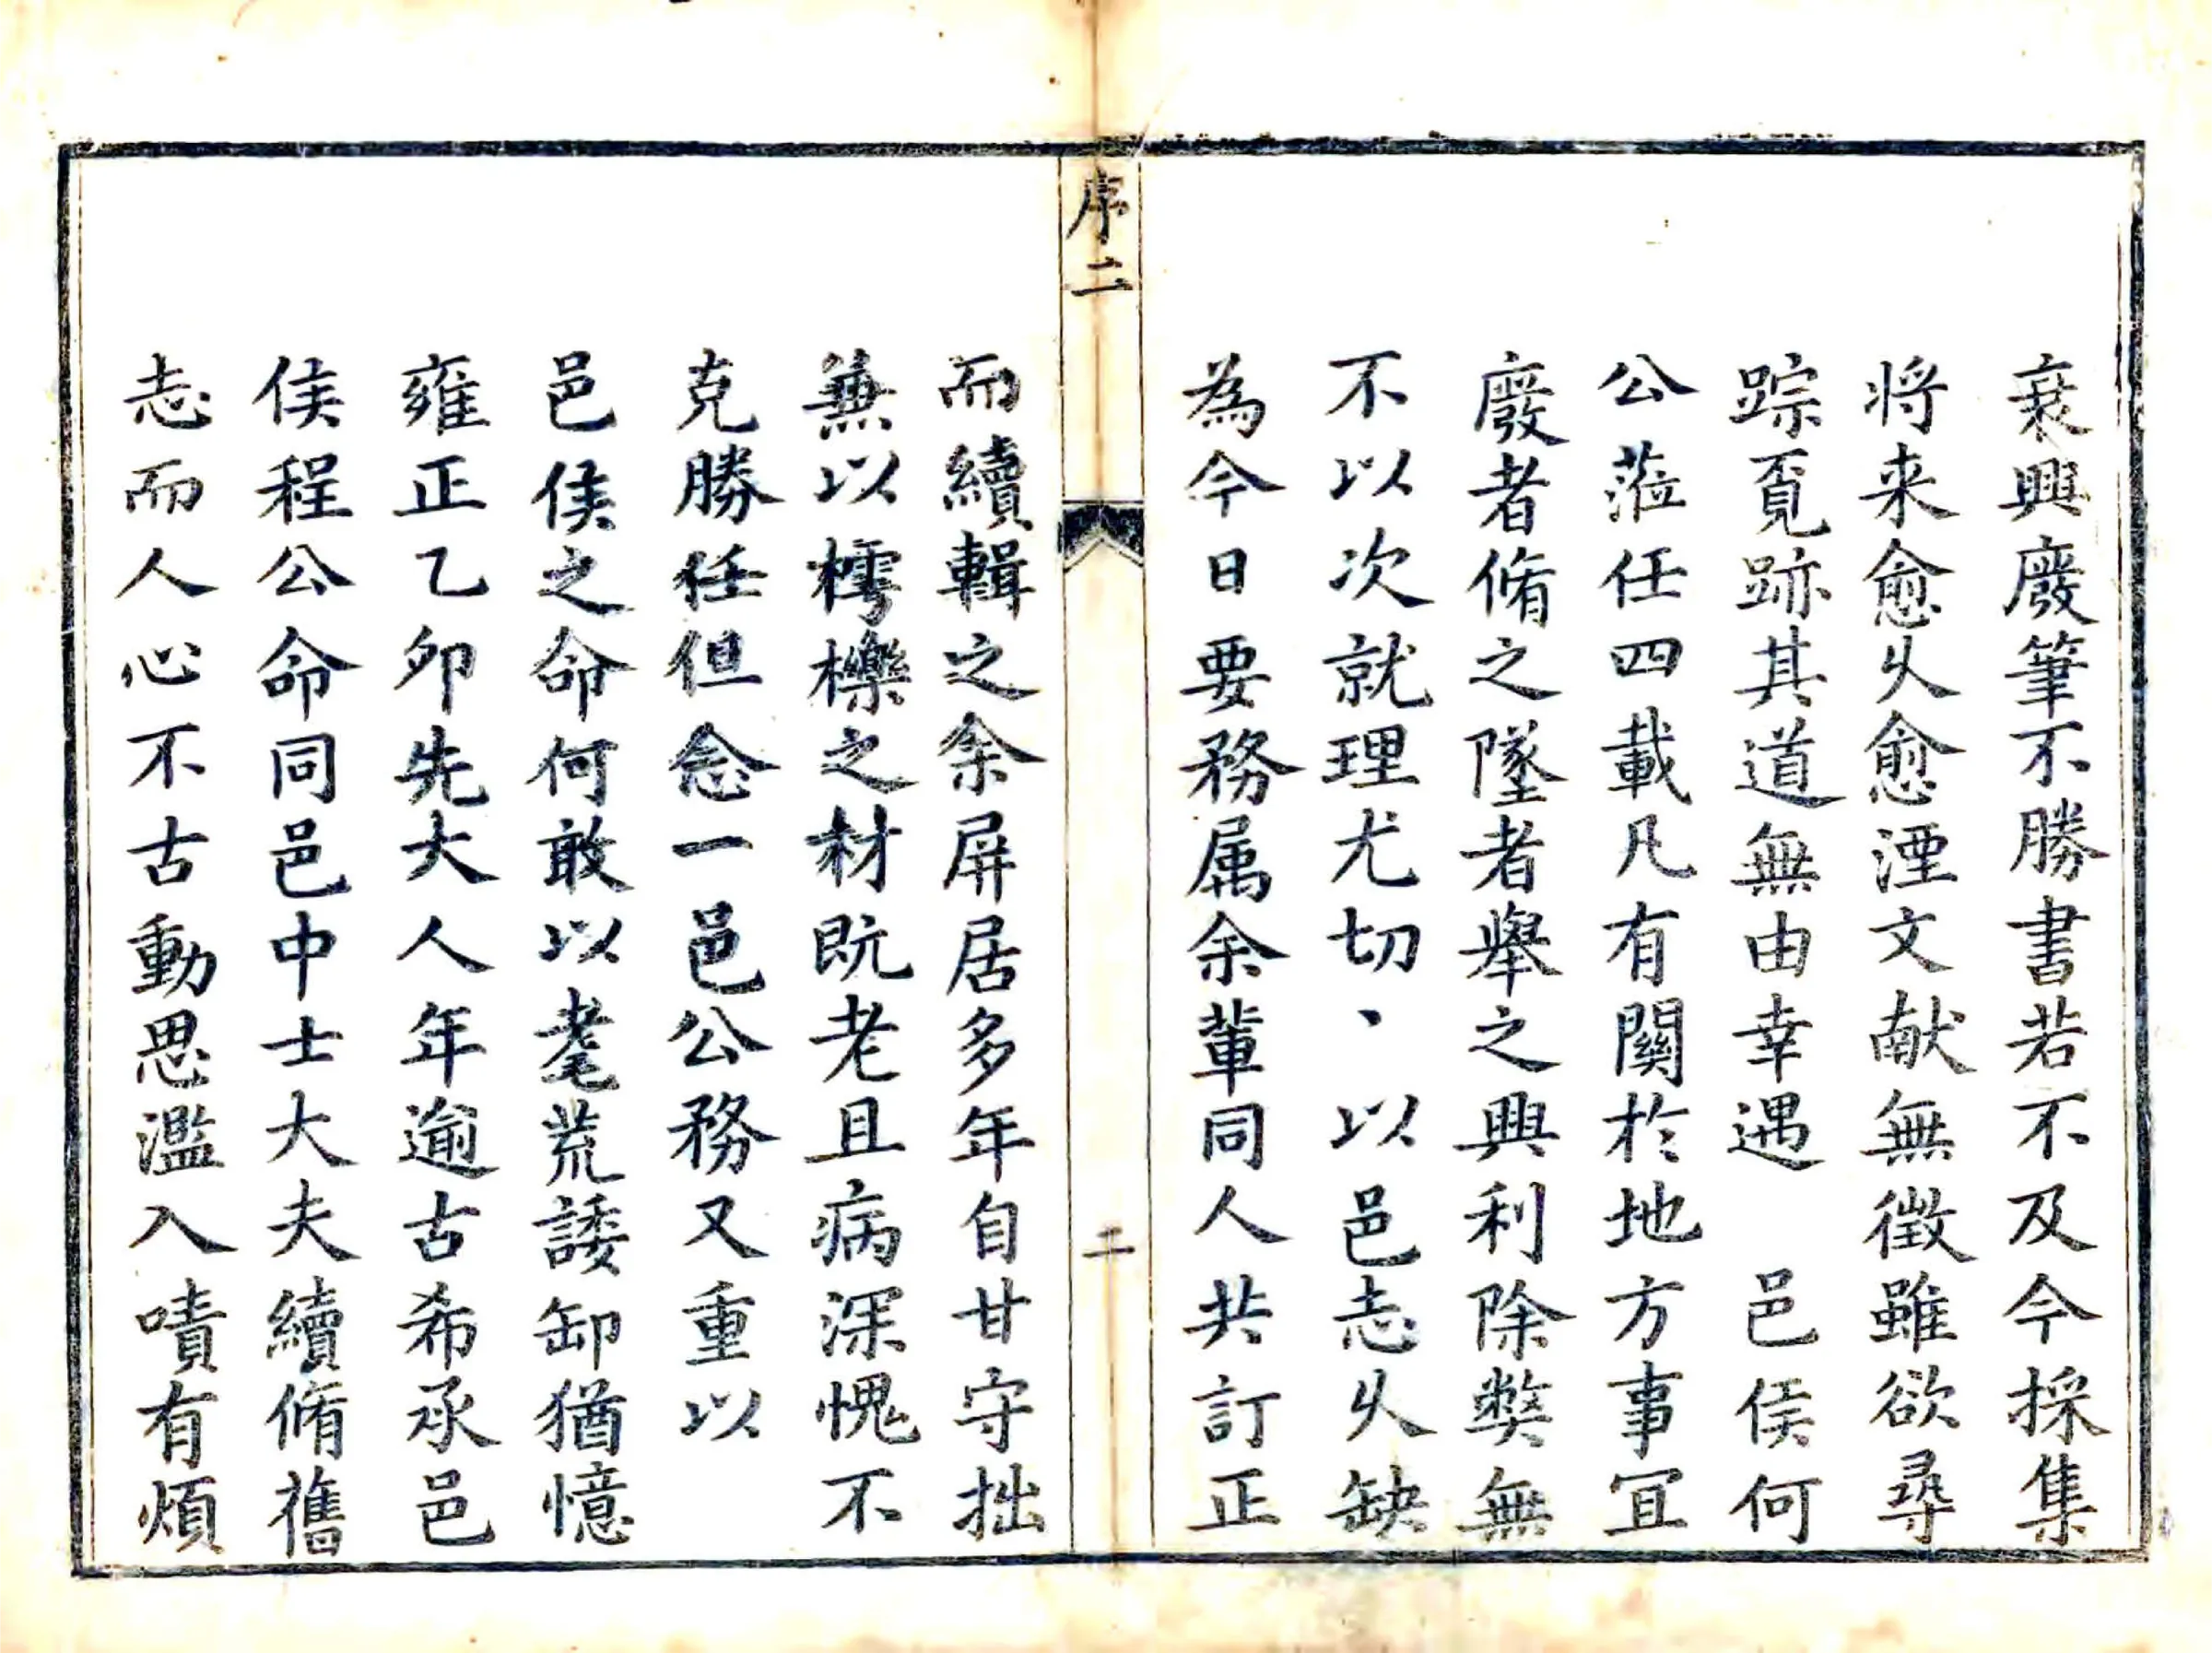 衰興廢筆不勝書若不及今採集
将来愈久愈湮文献無徵雖欲尋
踪覓跡其道無由幸遇　邑侯何
公蒞任四載凡有關於地方事宜
廢者脩之墜者舉之興利除獘無
不以次就理尤切、以邑志久缺
為今日要務属余輩同人共訂正
序二
二
而續輯之余屏居多年自甘守拙
兼以樗櫟之材既老且病深愧不
克勝任但念一邑公務又重以
邑侯之命何敢以耄荒諉卸猶憶
雍正乙卯先大人年逾古希承邑
侯程公命同邑中士大夫續脩舊
志而人心不古動思濫入嘖有煩